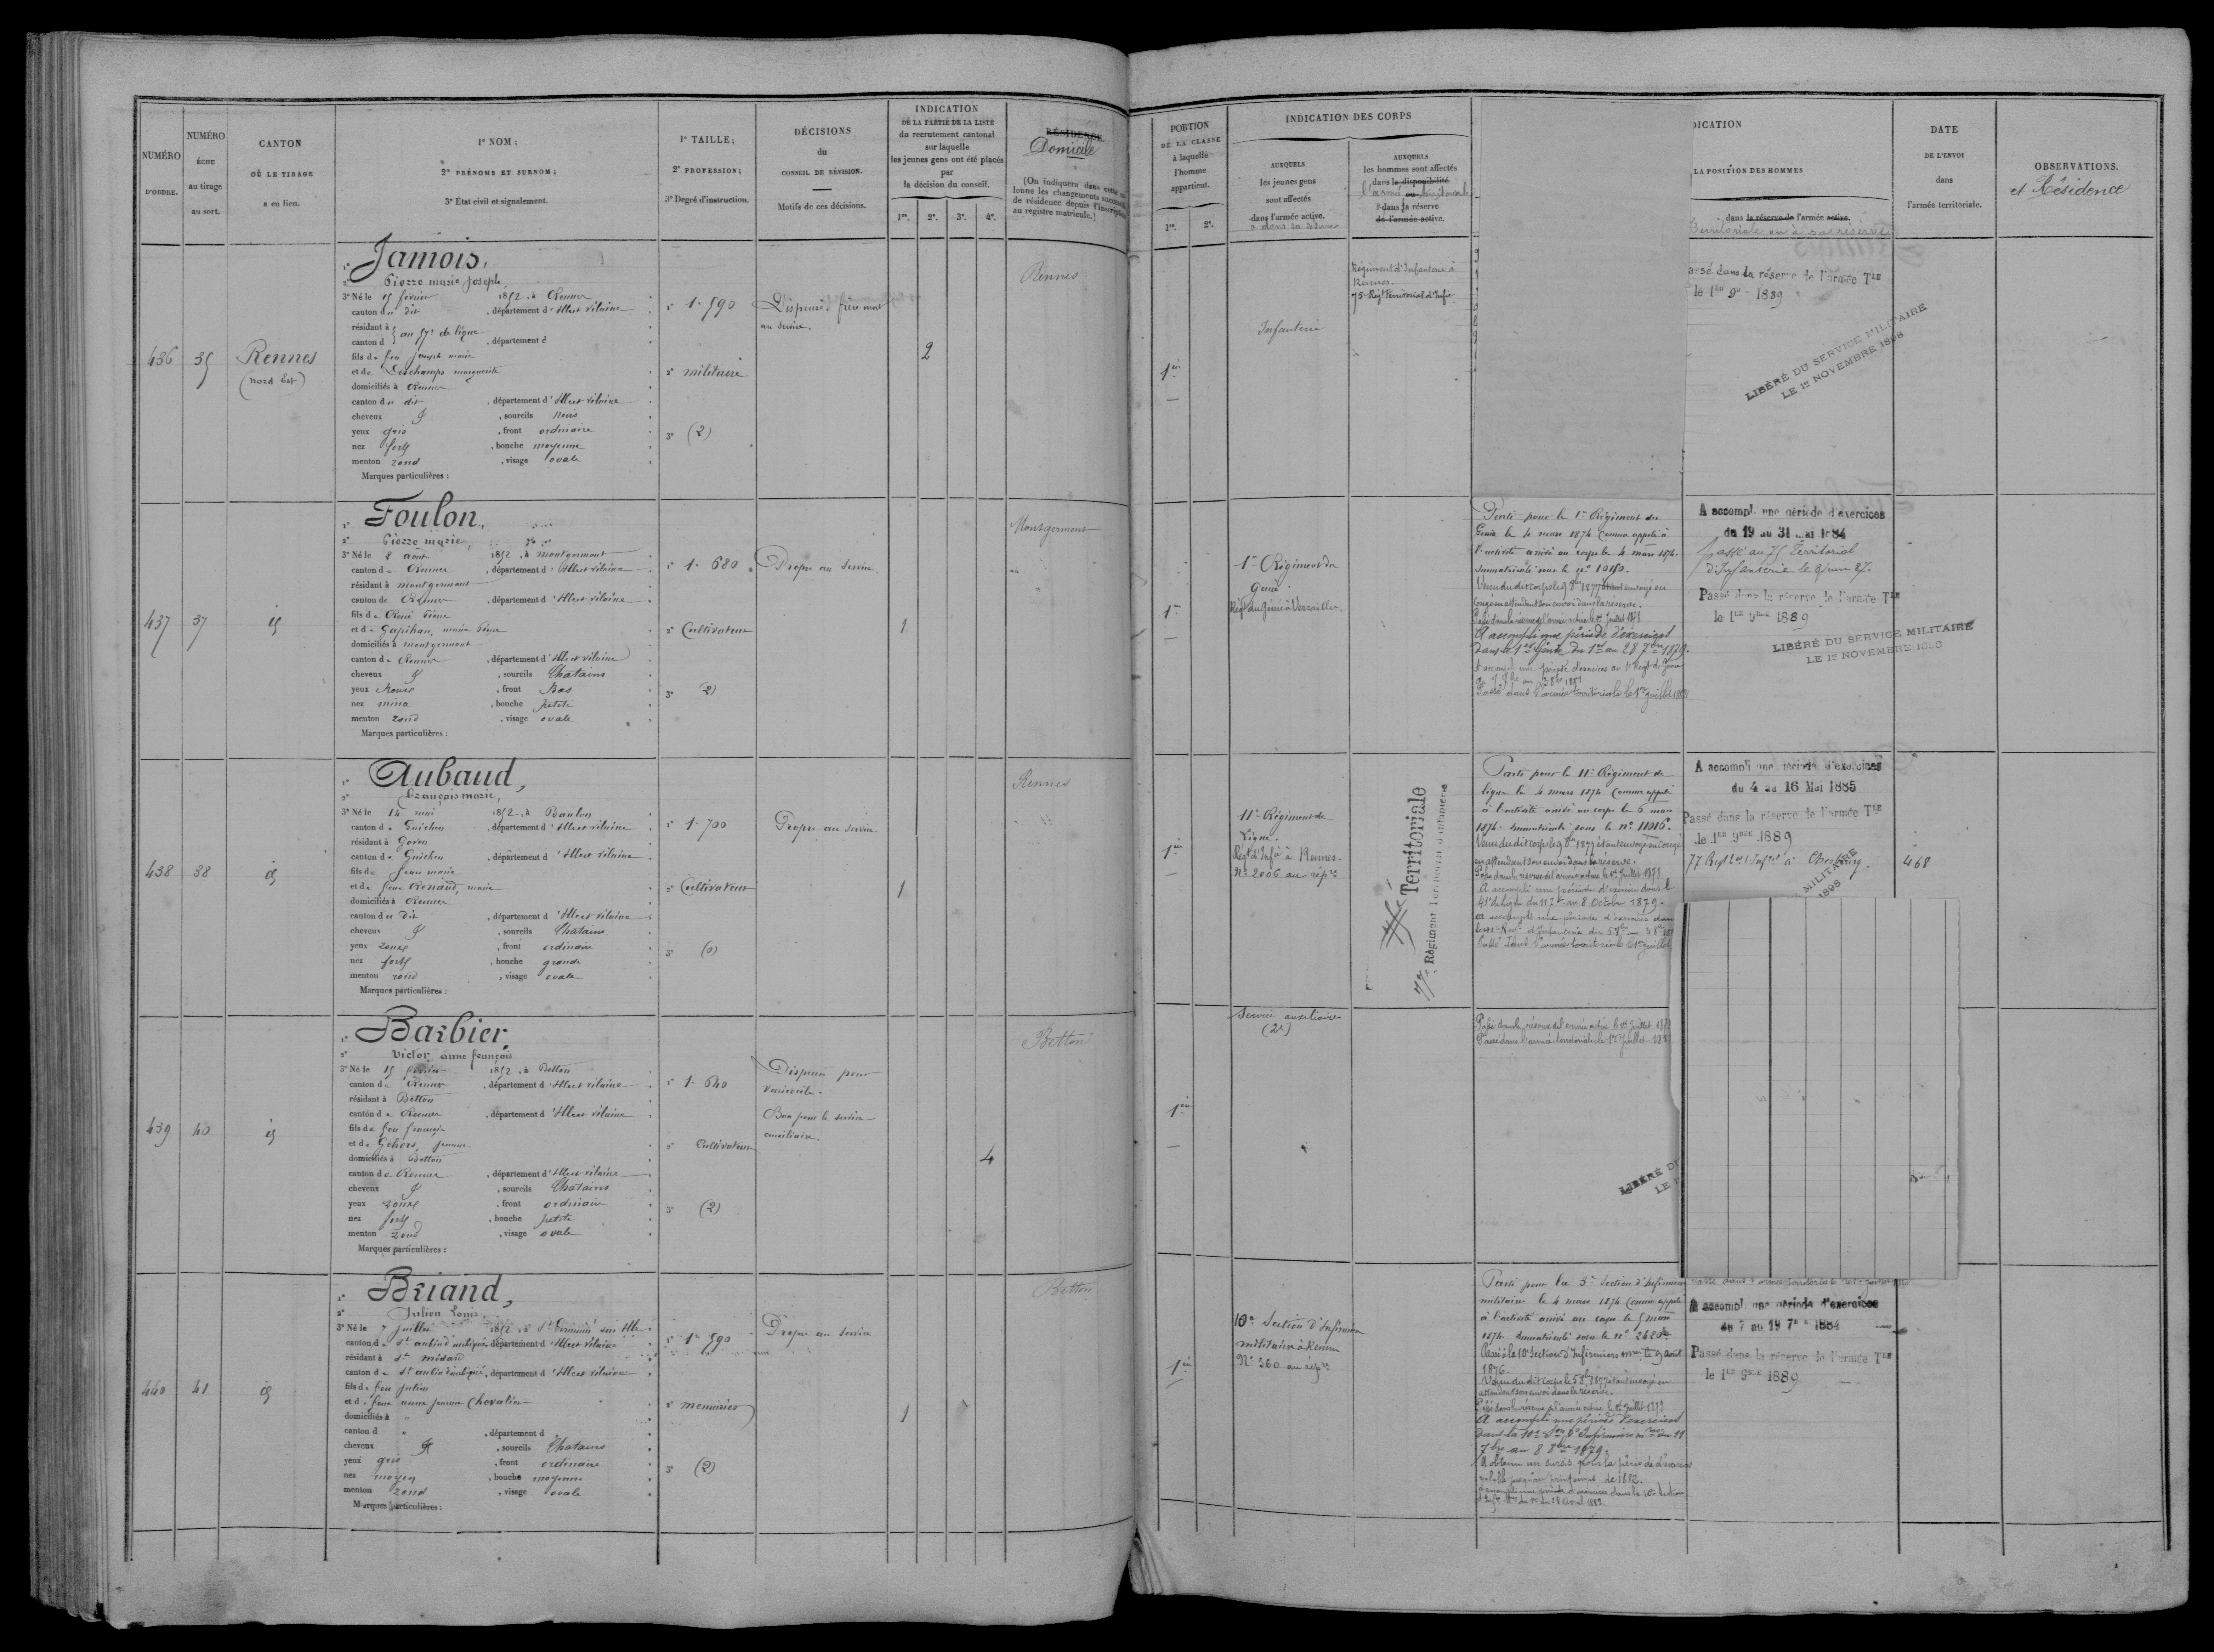 NUMÉRO
D'ORDRE.
NUMÉRO
ÉCHU
au tirage
au sort.
CANTON
OÙ LE TIRAGE
a eu lieu.
1º NOM ;
2º PRÉNOMS ET SURNOM ;
3º État civil et signalement.
1º TAILLE ;
2º PROFESSION ;
3º Degré d'instruction.
DÉCISIONS
du
CONSEIL DE RÉVISION.
Motifs de ces décisions.
INDICATION
DE LA PARTIE DE LA LISTE
du recrutement cantonal
sur laquelle
les jeunes gens ont été placés
par
la décision du conseil.
1re. 2e. 3e. 4e.
RÉSIDENCE
Domicile
(On indiquera dans cette
lonne les changements
de résidence depuis l'inscription
au registre matricule.)
PORTION
DE LA CLASSE
à laquelle
l'homme
appartient.
1re. 2e.
INDICATION DES CORPS
AUXQUELS
les jeunes gens
sont affectés
dans l'armée active.
AUXQUELS
les hommes sont affectés
dans la disponibilité
dans la réserve
de l'armée active.
DICATION
LA POSITION DES HOMMES
dans la réserve de l'armée active.
Territoriale ou à sa réserve
DATE
DE L'ENVOI
dans
l'armée territoriale.
OBSERVATIONS.
et Résidence
436
35
Rennes
(nord Est)
1º Jamois,
2º Pierre marie Joseph
3º Né le 15 février 1852, à Rennes
canton du dit, département d'Ille et vilaine
résidant à
canton d, département d
fils de feu Joseph marie
et de Deschamps marguerite
domiciliés à Rennes
canton du dit, département d'Ille et vilaine
cheveux, sourcils noirs
yeux gris, front ordinaire
nez fort, bouche moyenne
menton rond, visage ovale
Marques particulières :
1º 1.590
2º militaire
3º (2)
Dispensé frère mort
au service.
2
Rennes
1ère
Infanterie
Régiment d'Infanterie à
Rennes.
75e Régt territorial d'Infie
assé dans la réserve de l'armée Tle
le 1er 9bre 1889
LIBÉRÉ DU SERVICE MILITAIRE
LE 1er NOVEMBRE 1898
437
37
id
1º Foulon,
2º Pierre marie,
3º Né le 2 août 1852, à montgermont
canton de Rennes, département d'Ille et vilaine
résidant à montgermont
canton de Rennes, département d'Ille et vilaine
fils de René Pierre
domiciliés à montgermont
canton de Rennes, département d'Ille et vilaine
cheveux, sourcils Chatains
yeux Roux, front Bas
nez mince, bouche petite
menton rond, visage ovale
Marques particulières :
1º 1.680
2º Cultivateur
3º (2)
Propre au Service.
1
Montgermont
1ère
1er Régiment du
Génie
Régt du Génie à Versailles.
Parti pour le 1er Régiment du
Génie le 4 mars 1874 Comme appelé à
l'activité arrivé au corps le 4 mars 1874.
Immatriculé sous le nº
congé en attendant son envoi dans la réserve.
Passé dans la réserve de l'armée active le 1er Juillet 1878
A accompli une période d'exercices
dans le 1er Génie du 1er au 28 7bre 1879.
Passé dans l'armée territoriale le 1er juillet
A accompl. une période d'exercices
du 19 au 31 mai 1884
Passé au 75 Territorial
d'Infanterie le 8 juin 87.
Passé dans la réserve de l'armée Tle
le 1er 9bre 1889
LIBÉRÉ DU SERVICE MILITAIRE
LE 1er NOVEMBRE 1898
438
38
id
1º Aubaud,
2º François marie,
3º Né le 14 mai 1852, à Baulon
canton de Guichen, département d'Ille et vilaine
résidant à Goven
canton de Guichen, département d'Ille et vilaine
fils de Jean marie
et de feue Renaud, marie
domiciliés à Rennes
canton du dit, département d'Ille et vilaine
cheveux, sourcils Chatains
yeux roux, front ordinaire
nez fort, bouche grande
menton rond, visage ovale
Marques particulières :
1º 1.700
2º Cultivateur
3º (0)
Propre au service
1
Rennes
1ère
11e Régiment de
Ligne
Régt d'Infie à Rennes.
Nº 2006 au rép.re
Territoriale
Régiment Territorial d'Infanterie
Parti pour le 11e Régiment de
ligne le 4 mars 1874 Comme appelé
à l'activité arrivé au corps le 6 mars
1874. Immatriculé sous le nº 11016.
en attendant son envoi dans la réserve.
Passé dans la réserve de l'armée active le 1er Juillet 1878
A accompli une période d'exercice dans l
41e de ligne du 11 7bre au 8 Octobre 1879.
Passé dans l'armée territoriale le 1er juillet
A accompli une période d'exercices
du 4 au 16 Mai 1885
Passé dans la réserve de l'armée Tle
le 1er 9bre 1889
77 Regt d'Infie à Cherbourg.
468
MILITAIRE
1898
439
40
id
1º Barbier,
2º Victor anne françois
3º Né le 15 février 1852, à Betton
canton de Rennes, département d'Ille et vilaine
résidant à Betton
canton de Rennes, département d'Ille et vilaine
fils de feu françois
et de Gehors, Jeanne
domiciliés à Betton
canton de Rennes, département d'Ille et vilaine
cheveux, sourcils Chatains
yeux roux, front ordinaire
nez fort, bouche petite
menton rond, visage ovale
Marques particulières :
1º 1.640
2º Cultivateur
3º (2)
Dispensé pour
varicocèle.
Bon pour le service
auxiliaire.
4
Betton
1ère
Service auxiliaire
(2e)
Passé dans la réserve de l'armée active le 1er Juillet 1878
Passé dans l'armée territoriale le 1er Juillet
LIBÉRÉ DU
LE 1
440
41
id
1º Briand,
2º Julien Louis,
3º Né le 7 Juillet 1852, à St Germain sur Ille
canton de St aubin d'aubigné, département d'Ille et vilaine
résidant à St médard
canton de St aubin d'aubigné, département d'Ille et vilaine
fils de feu Julien
et de feue anne Jeanne Chevalier
domiciliés à "
canton d ", département d
cheveux, sourcils Chatains
yeux gris, front ordinaire
nez moyen, bouche moyenne
menton rond, visage ovale
Marques particulières :
1º 1.590
2º menuisier
3º (2)
Propre au service
1
Betton
1ère
10e Section d'Infirmiers
militaire à Rennes
Nº 360 au rép.re
Parti pour la 3e Section d'Infirmiers
militaire le 4 mars 1874 Comme appelé
à l'activité arrivé au corps le 5 mars
1874. Immatriculé sous le nº
Passé à la 10e Section d'Infirmiers mres le 9 août
1876.
attendant son envoi dans la réserve.
Passé dans la réserve de l'armée active le 1er Juillet 1878
A accompli une période d'exercices
dans la 10e Son d'Infirmiers mres du 11
7bre au 8 8bre 1879.
A obtenu un sursis pour la période d'exercices
valable jusqu'au printemps de 1882.
A accompl. une période d'exercices
du 7 au 19 7bre 1884
Passé dans la réserve de l'armée Tle
le 1er 9bre 1889